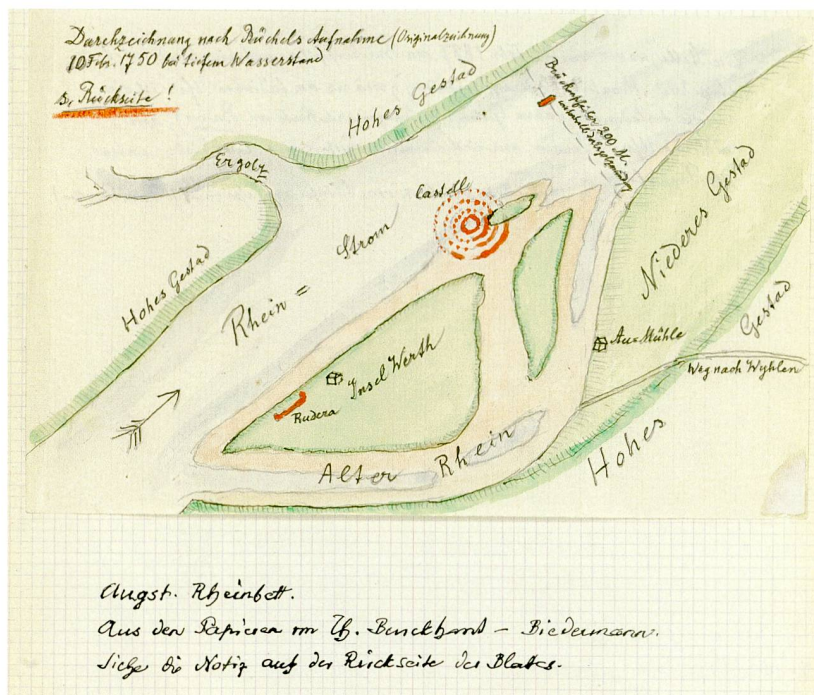 Durchzeichnung nach Büchels Aufnahme (Originalzeichnung)
10 Febr. 1750 bei tiefem Wasserstand
s. Rückseite!
Hohes Gestad
200 M.
Ergolz
Castell
Strom
Rhein =
Hohes Gestad
Niederes Gestad
Au=Mühle
Weg nach Wyhlen
Hohes Gestad
Insel Werth
Rudera
Alter Rhein
Augst. Rheinbett.
Aus den Papieren von Th. Burckhardt – Biedermann.
Siehe die Notiz auf der Rückseite des Blattes.